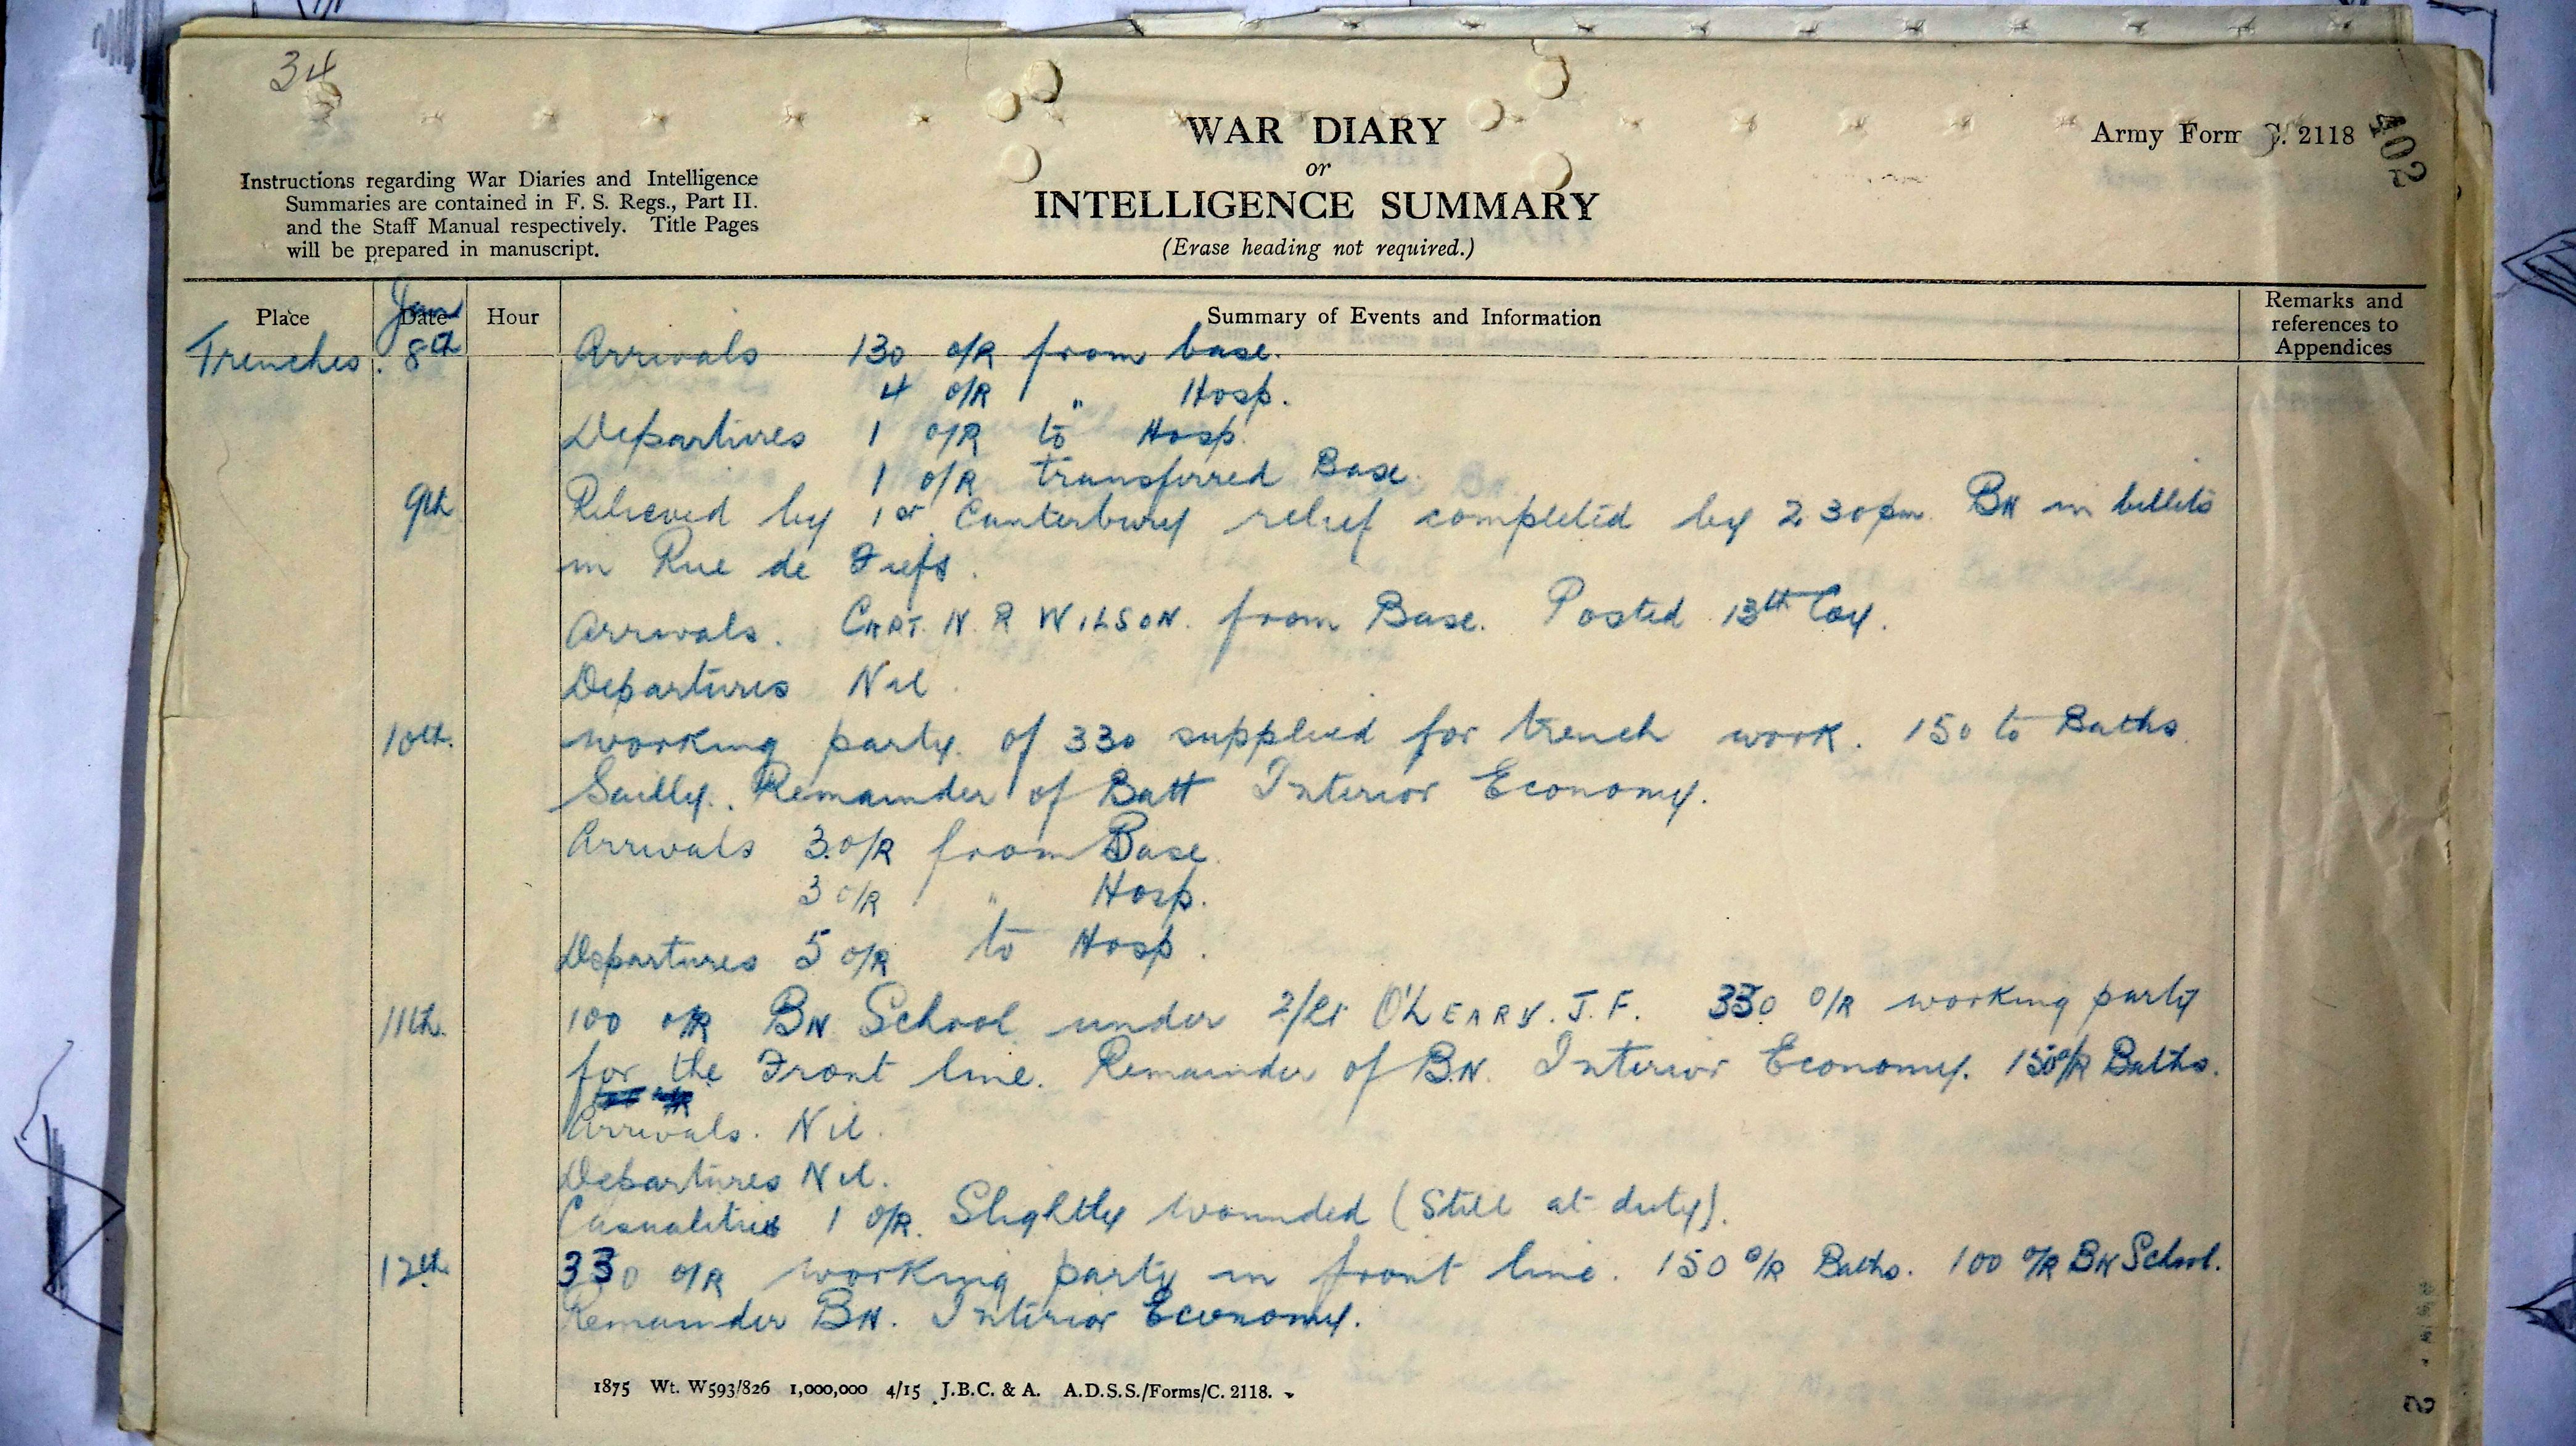 34
WAR DIARY
or
INTELLIGENCE SUMMARY
(Erase heading not required.)
Army Form C. 2118
402
Instructions regarding War Diaries and Intelligence
Summaries are contained in F. S. Regs., Part II.
and the Staff Manual respectively. Title Pages
will be prepared in manuscript.
Place Date Hour Summary of Events and Information Remarks and
references to
Appendices
Jan
Trenches. 8th Arrivals 130 O/R from base.
4 O/R " Hosp.
Departures 1 O/R to Hosp
1 O/R transferred Base.
9th Relieved by 1st Canterbury relief completed by 2 30 pm. BN in billets
in Rue de Fiefs.
Arrivals. CAPT. N. R WILSON. from Base. Posted 13th Coy.
Departures Nil.
10th. Working party of 330 supplied for trench work. 150 to Baths
Sailly. Remainder of Batt Interior Economy.
Arrivals 3 O/R from Base.
3 O/R " Hosp.
Departures 5 O/R to Hosp.
11th. 100 O/R BN School under 2/Lt O'LEARY. J. F. 330 O/R working party
for the Front line. Remainder of BN. Interior Economy. 150 O/R Baths.
Arrivals. Nil.
Departures Nil.
Casualities 1 O/R. Slightly wounded (Still at duty).
12th. 330 O/R working party in front line. 150 O/R Baths. 100 O/R BN School.
Remainder BN. Interior Economy.
1875 Wt. W593/826 1,000,000 4/15 J.B.C. & A. A.D.S.S./Forms/C. 2118.
2